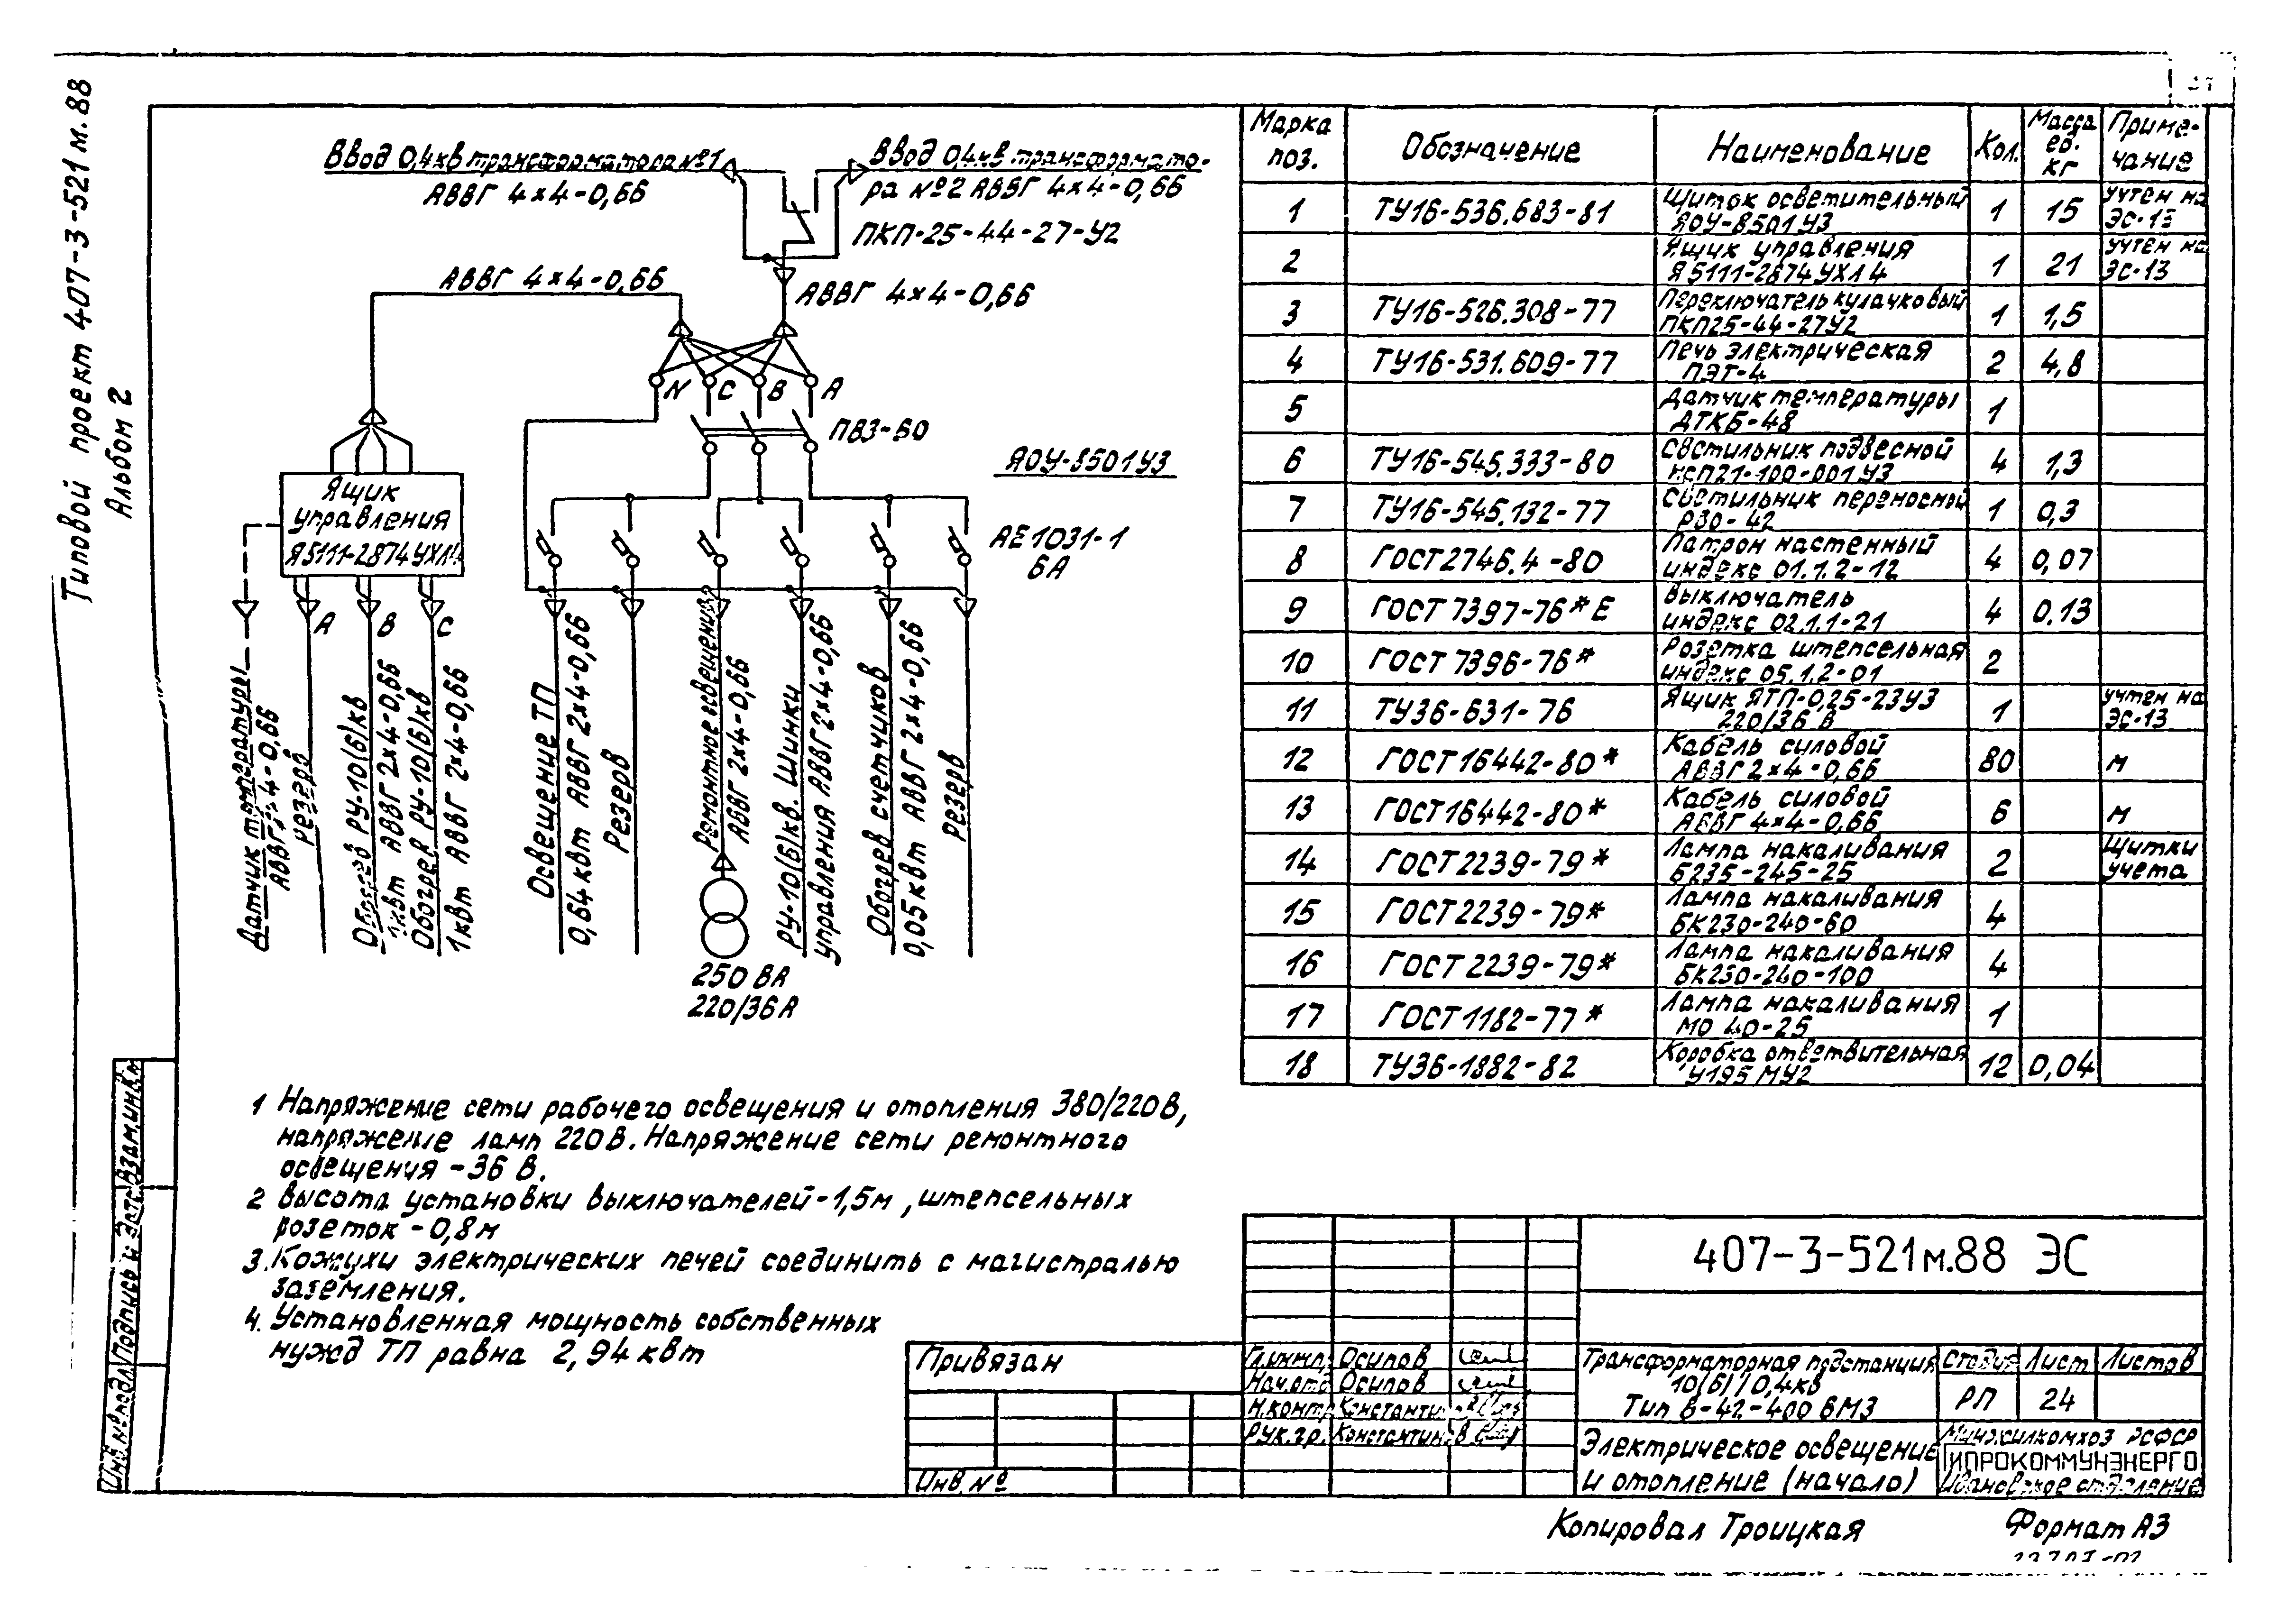 Типовой проект 407-3-521м.88
Альбом 2
Ввод 0,4кв трансформатора №1
АВВГ 4×4-0,66
Ввод 0,4кв трансформато-
ра №2 АВВГ 4×4-0,66
ПКП-25-44-27-У2
АВВГ 4×4-0,66
АВВГ 4×4-0,66
N
С
В
А
ПВЗ-60
ЯОУ-8501У3
Ящик
управления
Я5111-2874УХЛ4
АЕ1031-1
6А
А
В
С
Датчик температуры
резерв
Обогрев РУ-10(6)кв
1квт АВВГ 2×4-0,66
Обогрев РУ-10(6)кв
1квт АВВГ 2×4-0,66
Освещение ТП
0,64квт АВВГ 2×4-0,66
Резерв
Ремонтное освещение
АВВГ 2×4-0,66
РУ-10(6)кв. Шинки
управления АВВГ2×4-0,66
Обогрев счетчиков
0,05квт АВВГ 2×4-0,66
Резерв
250 ВА
220/36А
1 Напряжение сети рабочего освещения и отопления 380/220В,
напряжение ламп 220В. Напряжение сети ремонтного
освещения -36 В.
2 Высота установки выключателей-1,5м, штепсельных
розеток -0,8м
3. Кожухи электрических печей соединить с магистралью
заземления.
4. Установленная мощность собственных
нужд ТП равна 2,94 квт
Марка поз. Обозначение Наименование Кол. Масса ед. кг Приме-чание
1 ТУ16-536.683-81 Щиток осветительный ЯОУ-8501У3 1 15 учтен на ЭС-13
2 Ящик управления Я5111-2874УХЛ4 1 21 учтен на ЭС-13
3 ТУ16-526.308-77 Переключатель кулачковый ПКП25-44-27У2 1 1,5
4 ТУ16-531.609-77 Печь электрическая ПЭТ-4 2 4,8
5 Датчик температуры ДТКБ-48 1
6 ТУ16-545.333-80 Светильник подвесной НСП21-100-001У3 4 1,3
7 ТУ16-545.132-77 Светильник переносной РВО-42 1 0,3
8 ГОСТ2746.4-80 Патрон настенный индекс 01.1.2-12 4 0,07
9 ГОСТ 7397-76* Е Выключатель индекс 02.1.1-21 4 0.13
10 ГОСТ 7396-76* Розетка штепсельная индекс 05.1.2-01 2
11 ТУ36-631-76 Ящик ЯТП-0,25-23У3 220/36 В 1 учтен на ЭС-13
12 ГОСТ16442-80* Кабель силовой АВВГ 2×4-0,66 80 м
13 ГОСТ16442-80* Кабель силовой АВВГ 4×4-0,66 6 м
14 ГОСТ2239-79* Лампа накаливания Б235-245-25 2 Щитки учета
15 ГОСТ2239-79* Лампа накаливания БК230-240-60 4
16 ГОСТ2239-79* Лампа накаливания БК230-240-100 4
17 ГОСТ1182-77* Лампа накаливания МО 40-25 1
18 ТУ36-1882-82 Коробка ответвительная У195 МУ2 12 0,04
407-3-521м.88 ЭС
Привязан
Инв. №
Гл.инж.пр. Осипов
Нач.отд Осипов
Н.контр Константинов
Рук.гр. Константинов
Трансформаторная подстанция
10(6)/0,4кв
Тип В-42-400 ВМ3
Стадия Лист Листов
РП 24
Электрическое освещение
и отопление (начало)
Минжилкомхоз РСФСР
ГИПРОКОММУНЭНЕРГО
Ивановское отделение
Инв.№ подл. Подпись и дата Взам.инв.№
Копировал Троицкая
Формат А3